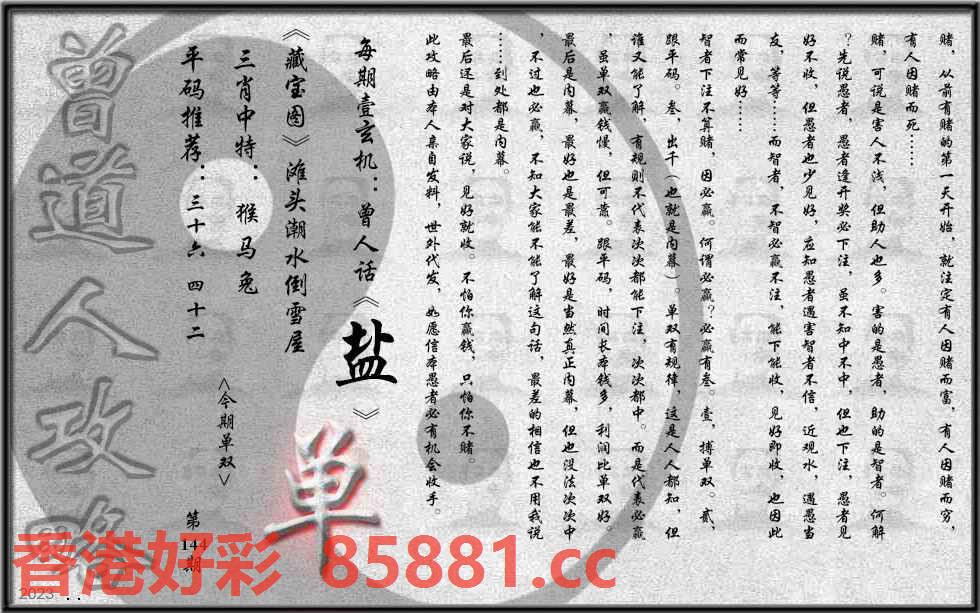 赌，从前有赌的第一天开始，就注定有人因赌而富，有人因赌而穷，
有人因赌而死……
赌，可说是害人不浅，但助人也多。害的是愚者，助的是智者。何解
？先说愚者，愚者逢开奖必下注，虽不知中不中，但也下注，愚者见
好不收，但愚者也少见好，应知愚者遇害智者不信，近观水，遇愚当
友，等等……而智者，不智必赢不注，能下能收，见好即收，也因此
而常见好……
智者下注不算赌，因必赢。何谓必赢？必赢有叁。壹，搏单双。贰，
跟平码。叁，出千（也就是内幕）。单双有规律，这是人人都知，但
谁又能了解，有规则不代表次次都能下注，次次都中。而是代表必赢
，虽单双赢钱慢，但可蓄。跟平码，时间长本钱多，利润比单双好。
最后是内幕，最好也是最差，最好是当然真正内幕，但也没法次次中
，不过也必赢，不知大家能不能了解这句话，最差的相信也不用我说
……到处都是内幕。
最后还是对大家说，见好就收。不怕你赢钱，只怕你不赌。
此攻略由本人亲自发料，世外代发，如愿信本愚者必有机会收手。
每期壹玄机：曾人话《盐》
《藏宝图》滩头潮水倒雪屋
三肖中特：猴马兔
平码推荐：三十六 四十二
<今期单双>
单
第144期
曾道人攻略
香港好彩 85881.cc
2023